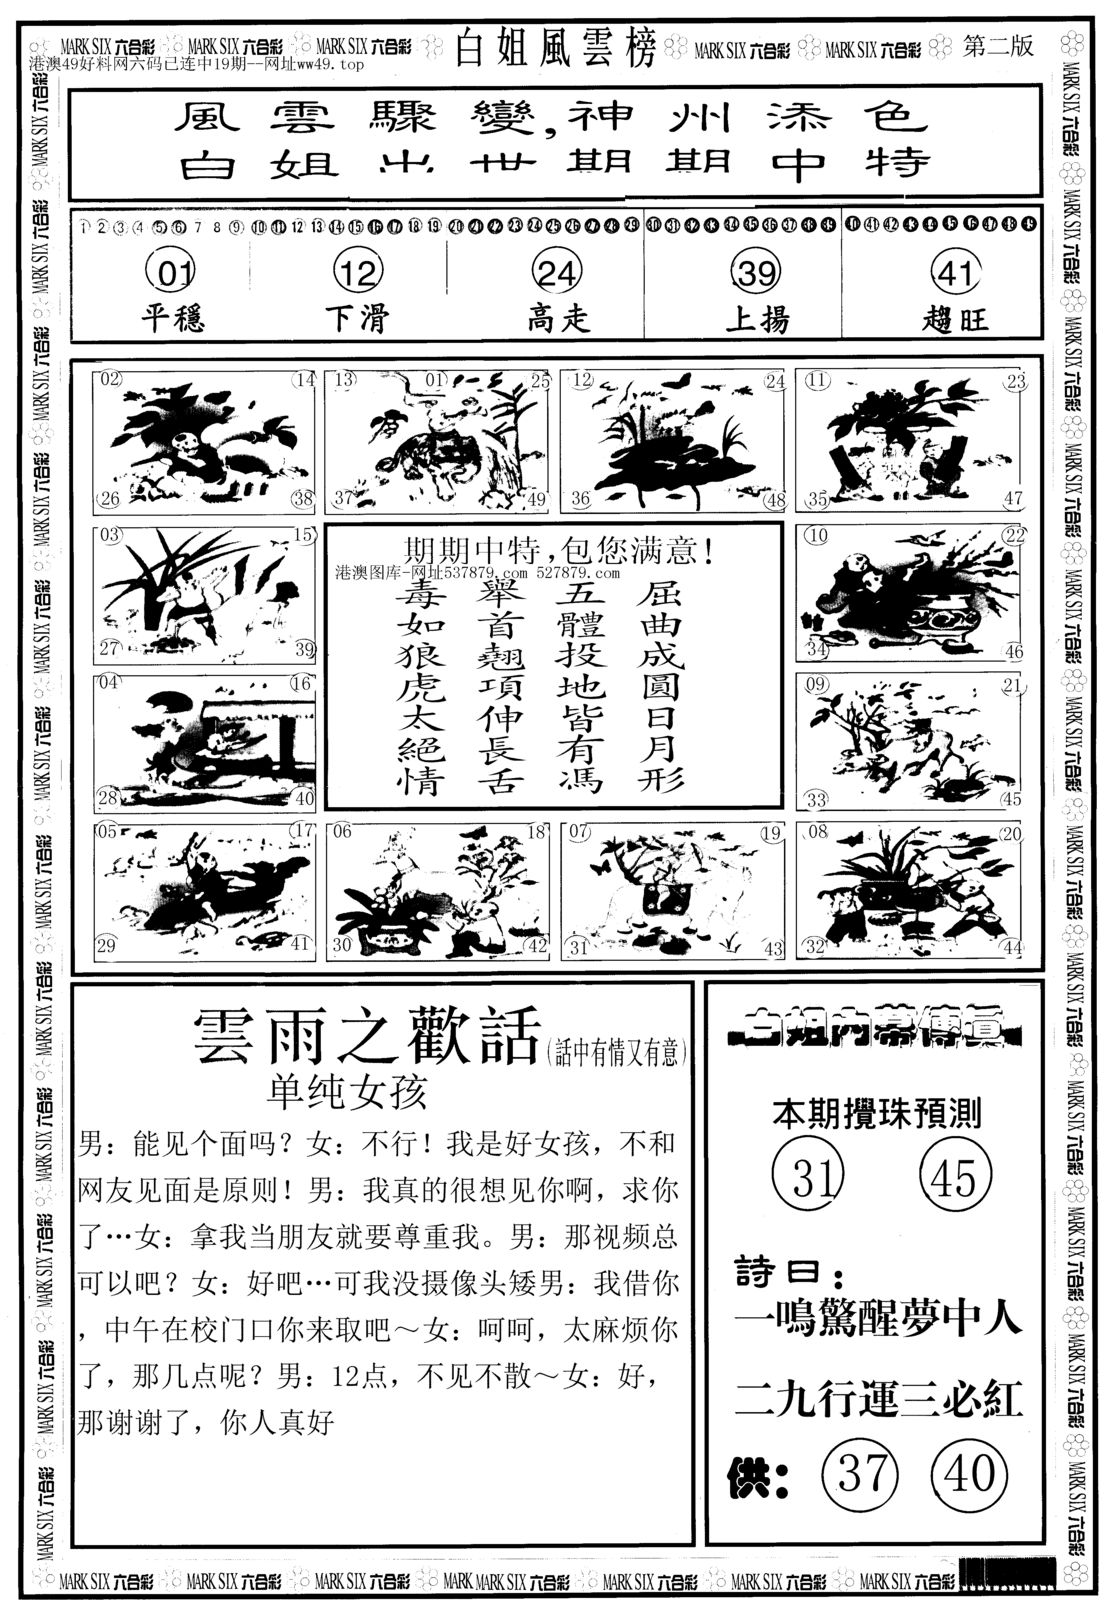 MARK SIX 六合彩 MARK SIX 六合彩 MARK SIX 六合彩 白姐風雲榜 MARK SIX 六合彩 MARK SIX 六合彩 第二版
港澳49好料网六码已连中19期--网址ww49.top
風雲驟變,神州添色
白姐出世期期中特
1 2 3 4 5 6 7 8 9 10 11 12 13 14 15 16 17 18 19 20 21 22 23 24 25 26 27 28 29 30 31 32 33 34 35 36 37 38 39 40 41 42 43 44 45 46 47 48 49
01 12 24 39 41
平穩 下滑 高走 上揚 趨旺
02 14 13 01 25 12 24 11 23
26 38 37 49 36 48 35 47
03 15 10 22
27 39 34 46
04 16 09 21
28 40 33 45
期期中特,包您满意!
港澳图库-网址537879.com 527879.com
屈曲成圓日月形
五體投地皆有馮
舉首翹項伸長舌
毒如狼虎太絕情
05 17 06 18 07 19 08 20
29 41 30 42 31 43 32 44
雲雨之歡話(話中有情又有意)
单纯女孩
男：能见个面吗？女：不行！我是好女孩，不和
网友见面是原则！男：我真的很想见你啊，求你
了…女：拿我当朋友就要尊重我。男：那视频总
可以吧？女：好吧…可我没摄像头矮男：我借你
，中午在校门口你来取吧～女：呵呵，太麻烦你
了，那几点呢？男：12点，不见不散～女：好，
那谢谢了，你人真好
白姐内幕傳真
本期攪珠預測
31 45
詩曰：
一鳴驚醒夢中人
二九行運三必紅
供： 37 40
MARK SIX 六合彩 MARK SIX 六合彩 MARK SIX 六合彩 MARK MARK SIX 六合彩 MARK SIX 六合彩 MARK SIX 六合彩 MARK SIX 六合彩